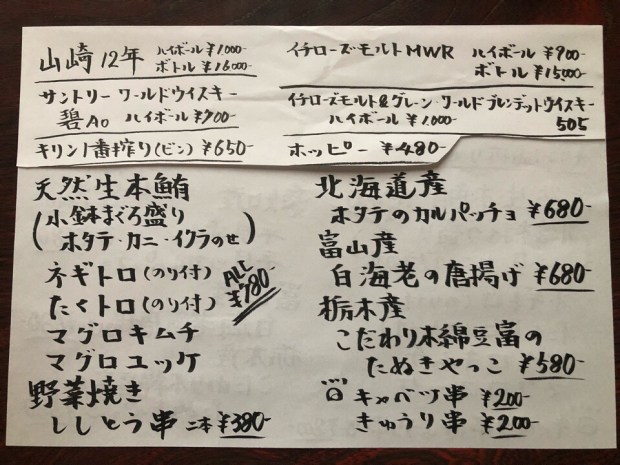 山崎12年 ハイボール ¥1.000-
ボトル ¥16000-
サントリー ワールドウイスキー
碧Ao ハイボール ¥700-
キリン1番搾り(ビン) ¥650-
イチローズモルトMWR ハイボール ¥900-
ボトル ¥15,000-
イチローズモルト&グレーン・ワールドブレンデットウイスキー
ハイボール ¥1.000- 505
ホッピー ¥480-
天然生本鮪
(小鉢まぐろ盛り
ホタテ・カニ・イクラのせ)
ネギトロ(のり付)
たくトロ(のり付)
マグロキムチ
マグロユッケ
ALL ¥780-
野菜焼き
ししとう串 二本 ¥380-
北海道産
ホタテのカルパッチョ ¥680-
富山産
白海老の唐揚げ ¥680-
栃木産
こだわり木綿豆富の
たぬきやっこ ¥580-
キャベツ串 ¥200-
きゅうり串 ¥200-